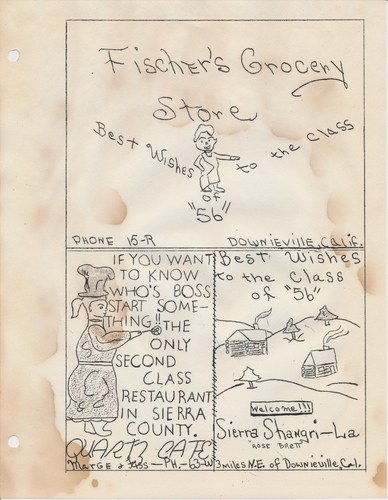 Fischer's Grocery
Store
Best Wishes to the Class
of
"56"
PHONE 15-R DOWNIEVILLE, CALIF.
IF YOU WANT
TO KNOW
WHO'S BOSS
START SOME-
THING!! THE
ONLY
SECOND
CLASS
RESTAURANT
IN SIERRA
COUNTY.
QUARTZ CAFE
MARGE & JASS - PH. - 63-W
Best Wishes
to the Class
of "56"
Welcome!!!
Sierra Shangri-La
ROSE BRETT
3 miles N.E. of Downieville Cal.